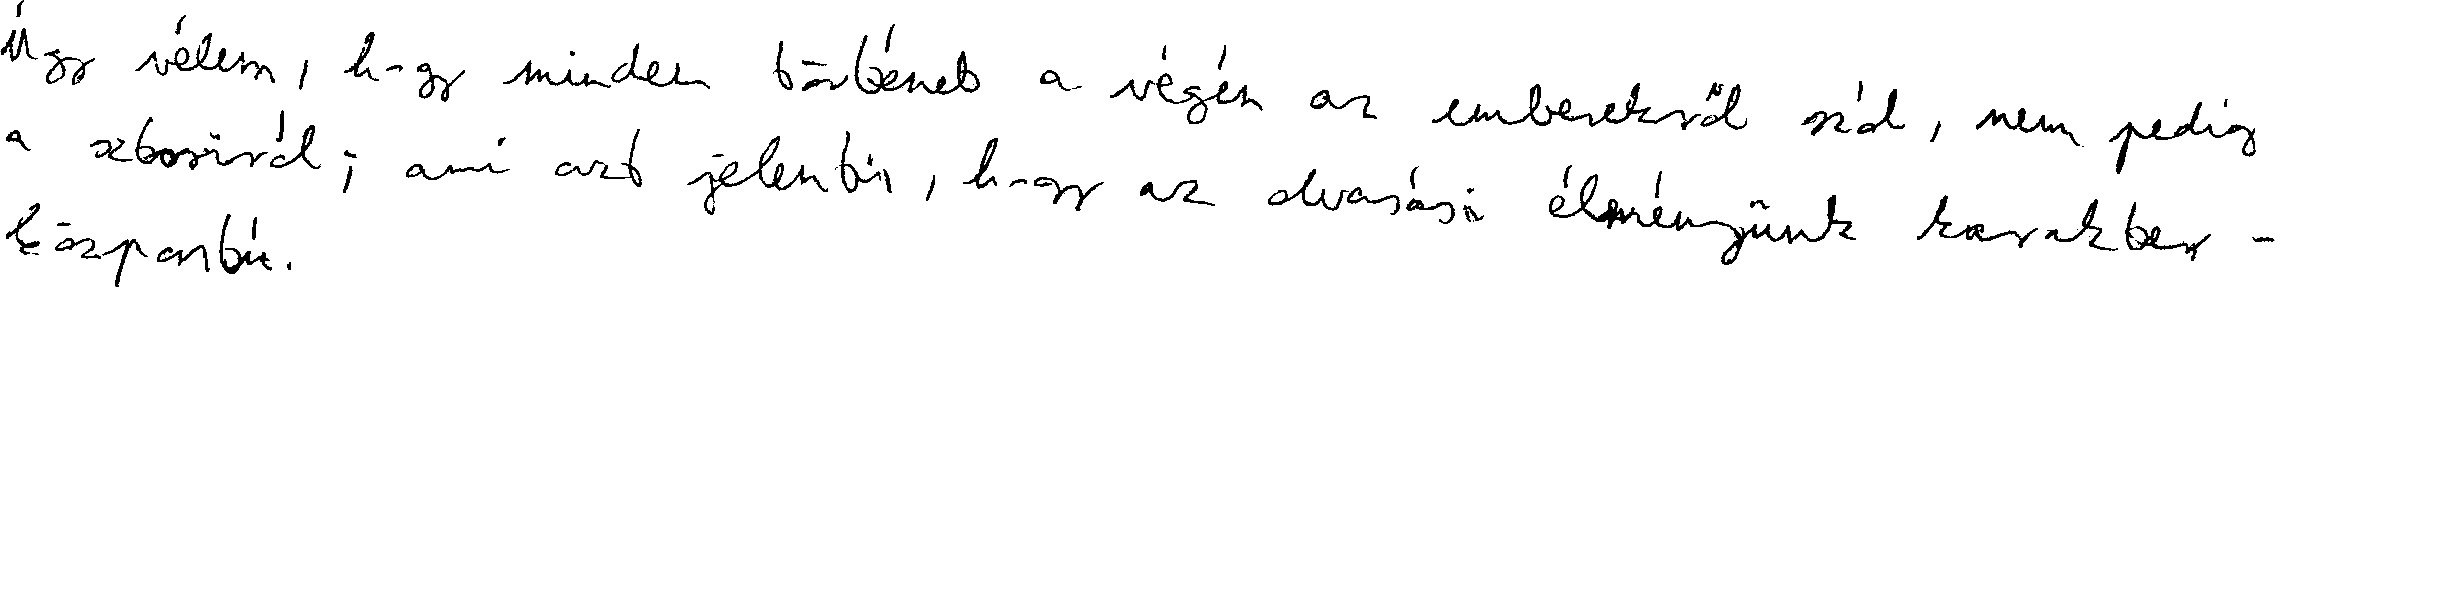 Úgy vélem, hogy minden történet a végén az emberekről szól, nem pedig
a sztoriról; ami azt jelenti, hogy az olvasási élményünk karakter-
központú.